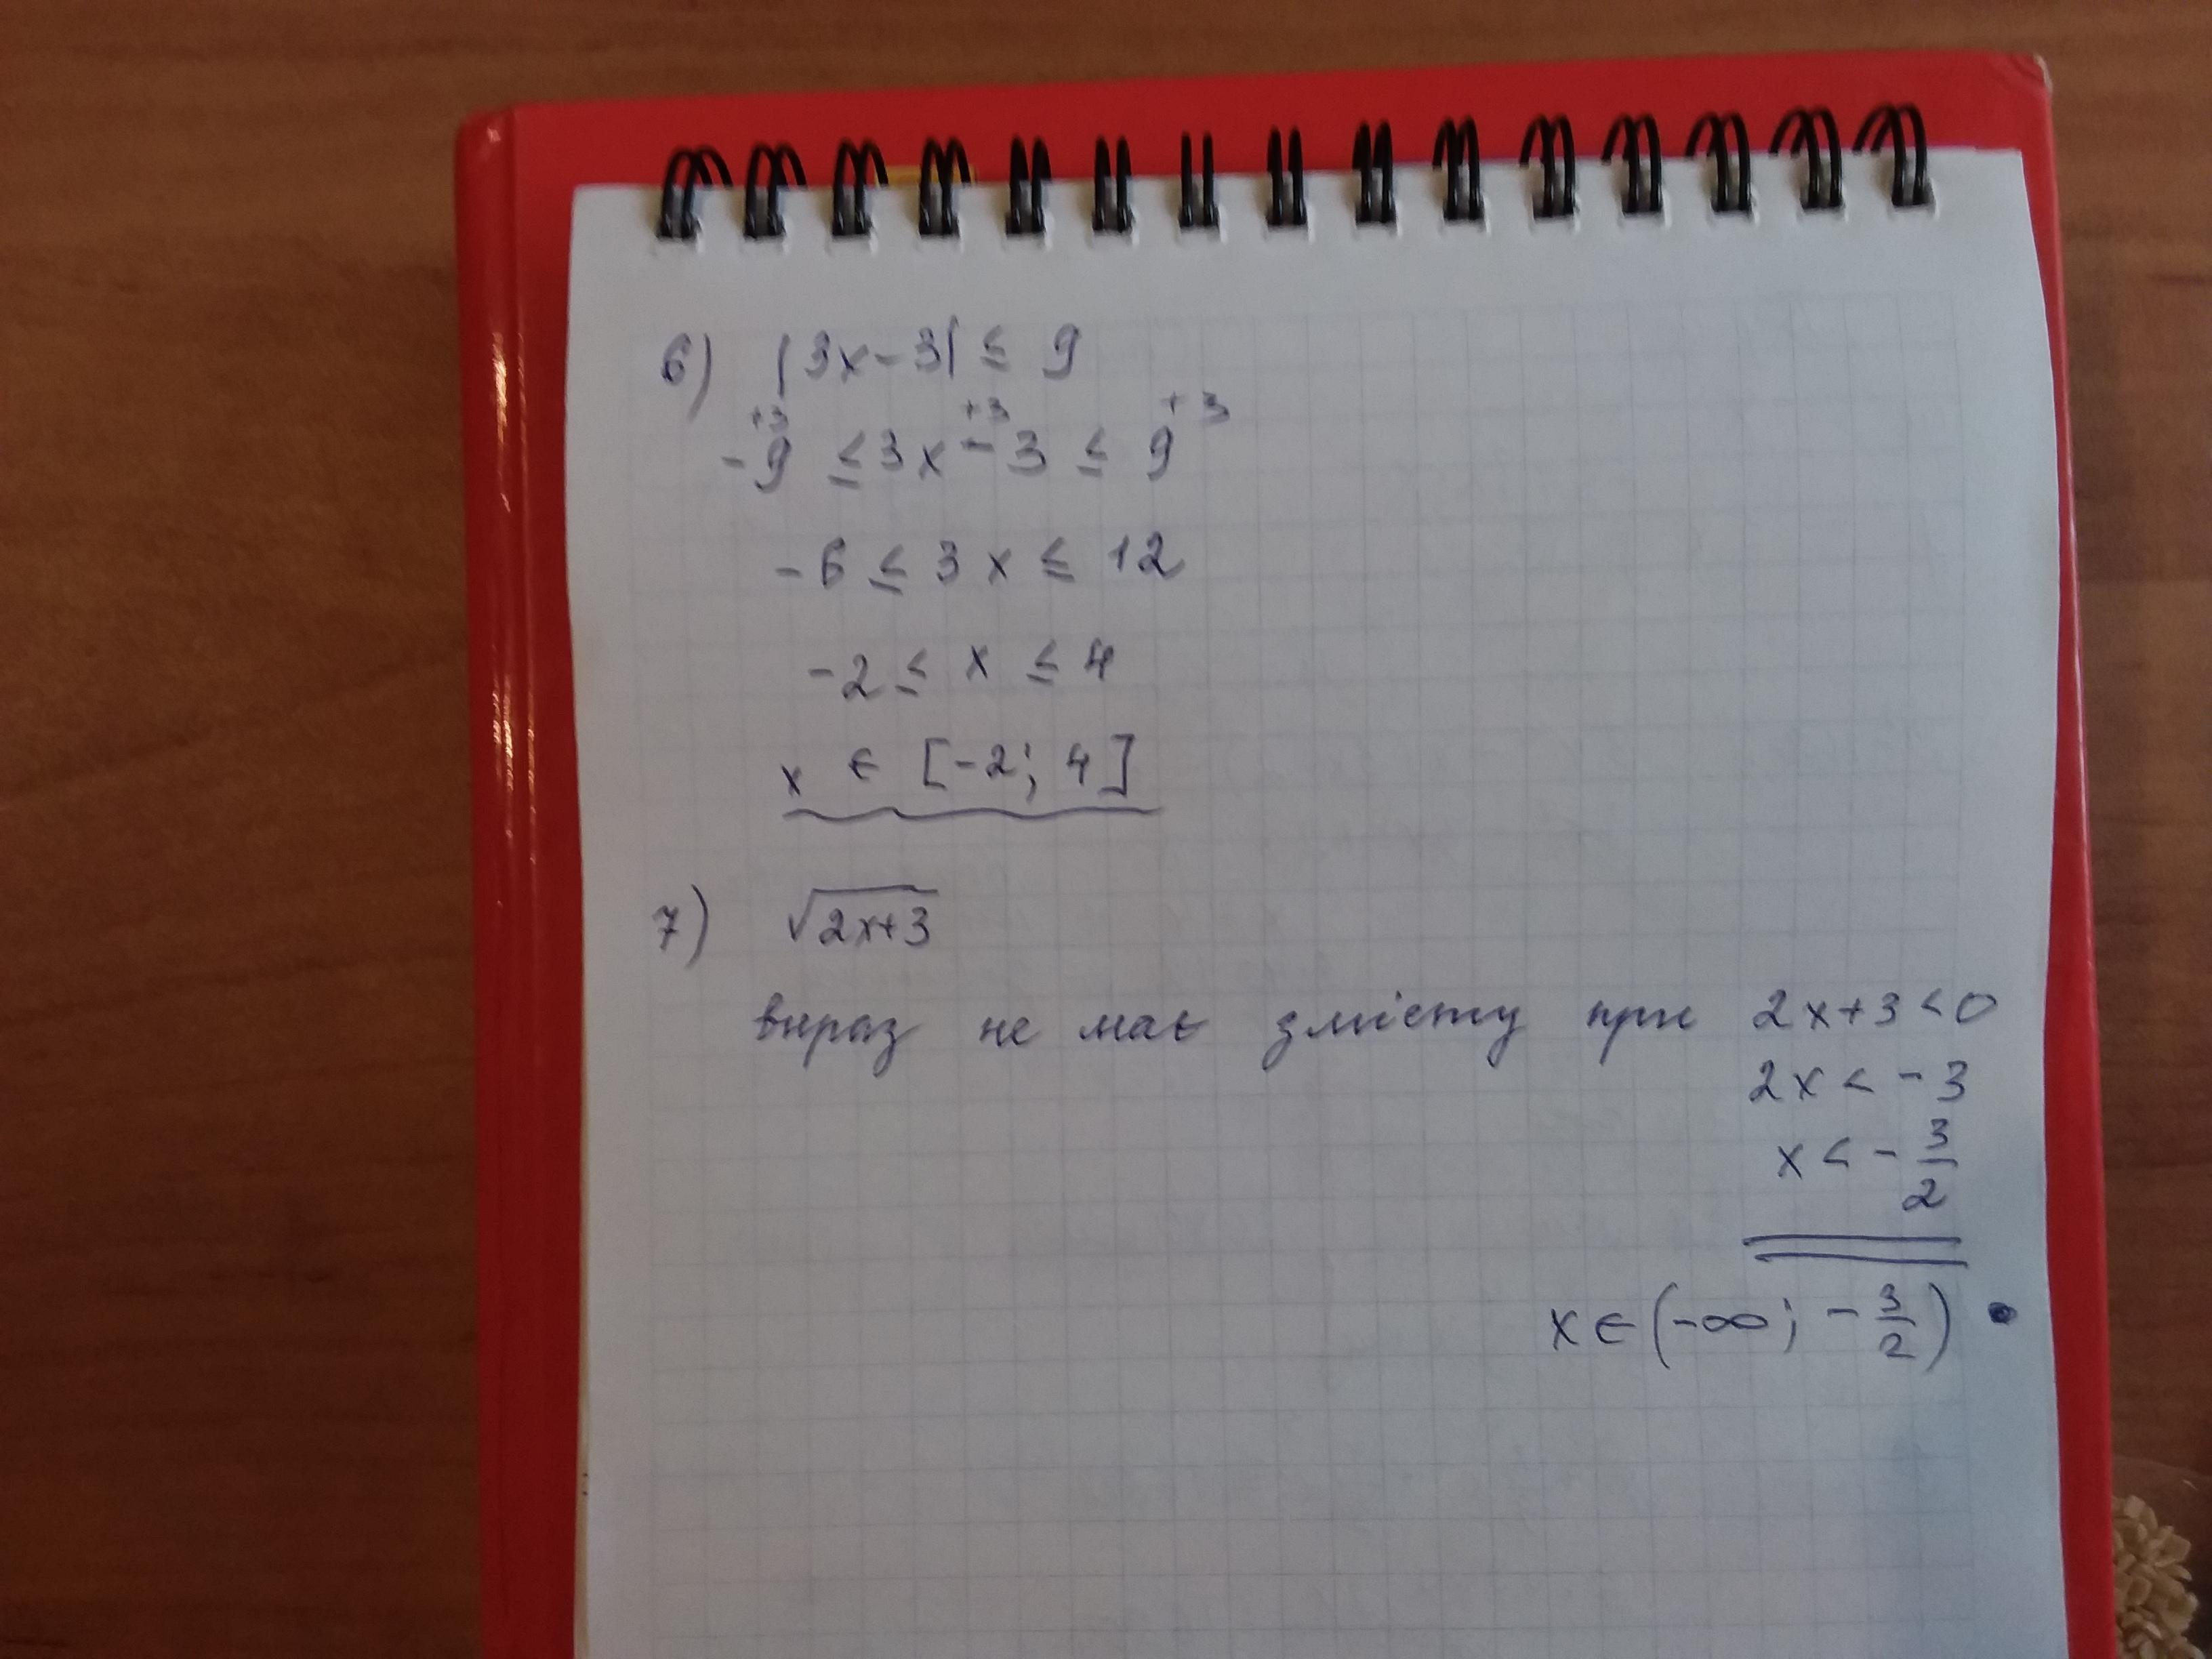 6) |3x-3| ≤ 9
+3 +3 +3
-9 ≤ 3x - 3 ≤ 9
-6 ≤ 3x ≤ 12
-2 ≤ x ≤ 4
x ∈ [-2; 4]
7) √(2x+3)
вираз не має змісту при 2x+3<0
2x < -3
x < - 3/2
x ∈ (-∞; - 3/2)